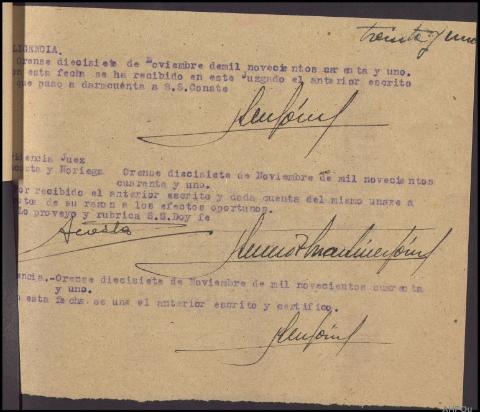 treinta y uno
LIGENCIA.
Orense diecisiete de Noviembre demil novecientos curenta y uno.
n esta fecha se ha recibido en este Juzgado el anterior escrito
que paso a darmcuenta a S.S.Conste
idencia Juez
costa y Noriega Orense diecisiete de Noviembre de mil novecientos
cuaranta y uno.
or recibido el anterior escrito y dada cuenta del mismo unase a
de su razon a los efectos oportunos.
Lo proveyo y rubrica S.S.Doy fe
Acosta
encia.-Orense diecisiete de Noviembre de mil novecientos cuarenta
y uno.
n esta fecha se une el anterior escrito y certifico.